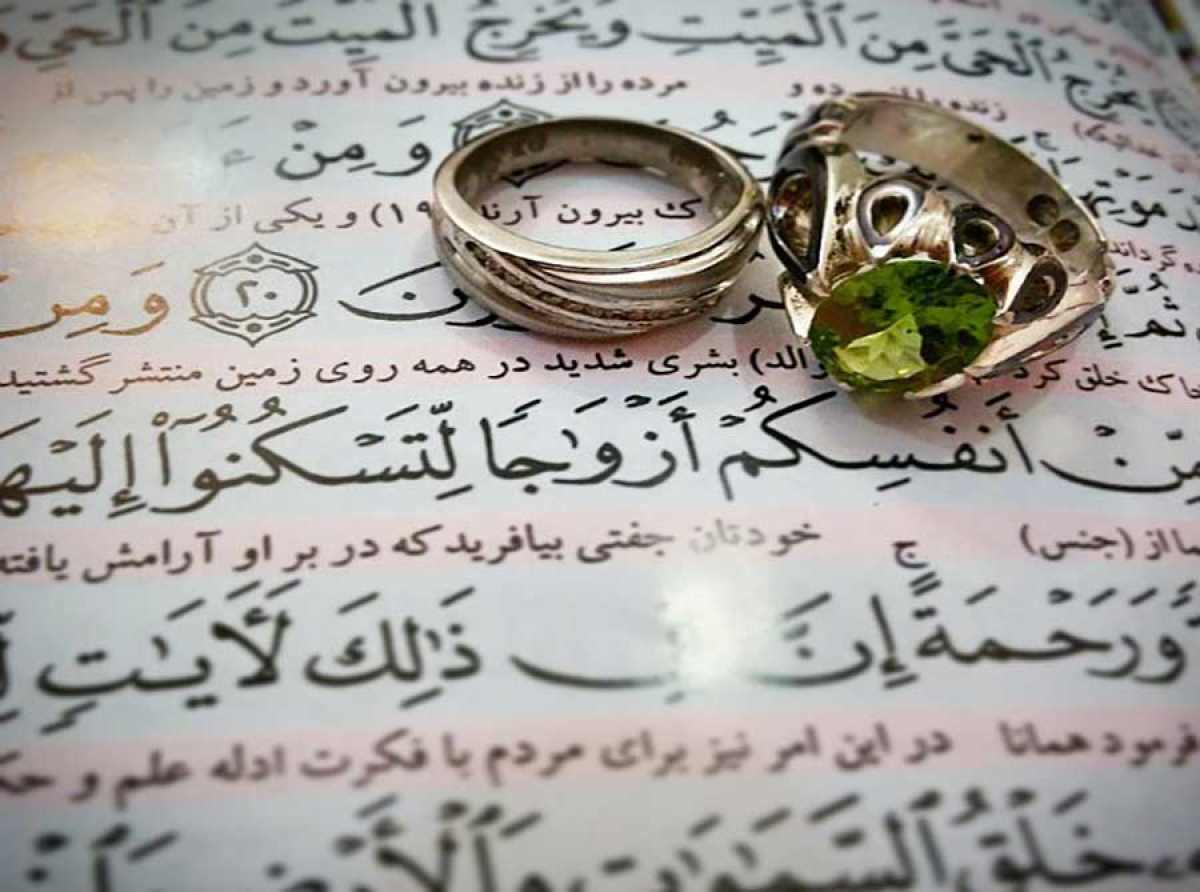 يُخْرِجُ ٱلْحَىَّ مِنَ ٱلْمَيِّتِ وَيُخْرِجُ ٱلْمَيِّتَ مِنَ ٱلْحَىِّ
زنده را از مرده و مرده را از زنده بیرون آورد و زمین را پس از
وَ مِنْ
بیرون آرند ۱۹) و یکی از آن
۲۰ وَ مِنْ
خاک خلق کرد بشری شدید در همه روی زمین منتشر گشتید
مِّنْ أَنفُسِكُمْ أَزْوَٰجًا لِّتَسْكُنُوٓا۟ إِلَيْهَا
از (جنس) خودتان جفتی بیافرید که در بر او آرامش یافته
وَرَحْمَةً ۚ إِنَّ فِى ذَٰلِكَ لَـَٔايَـٰتٍ
فرمود همانا در این امر نیز برای مردم با فکرت ادله علم و
خَلْقُ ٱلسَّمَـٰوَٰتِ وَٱلْأَرْضِ